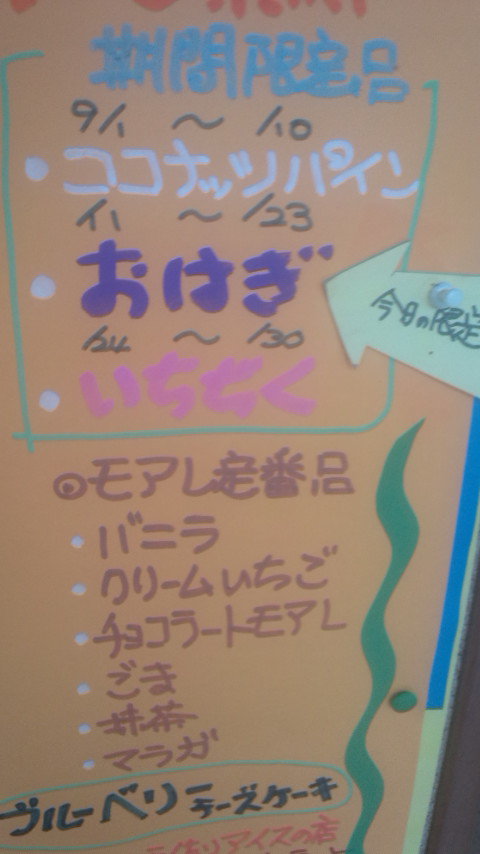 期間限定品
9/1 〜 /10
・ココナッツパイン
/11 〜 /23
・おはぎ
今日の限定
/24 〜 /30
・いちぢく
◎モアレ定番品
・バニラ
・クリームいちご
・チョコラートモアレ
・ごま
・抹茶
・マラガ
ブルーベリーチーズケーキ
作りアイスの店